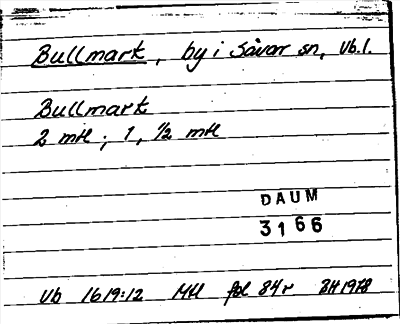 Bullmark, by i Sävar sn, Vb.l.
Bullmark
2 mtl ; 1, 1/2 mtl
DAUM
3166
Vb 1619:12 Mtl fol 84r BH 1978